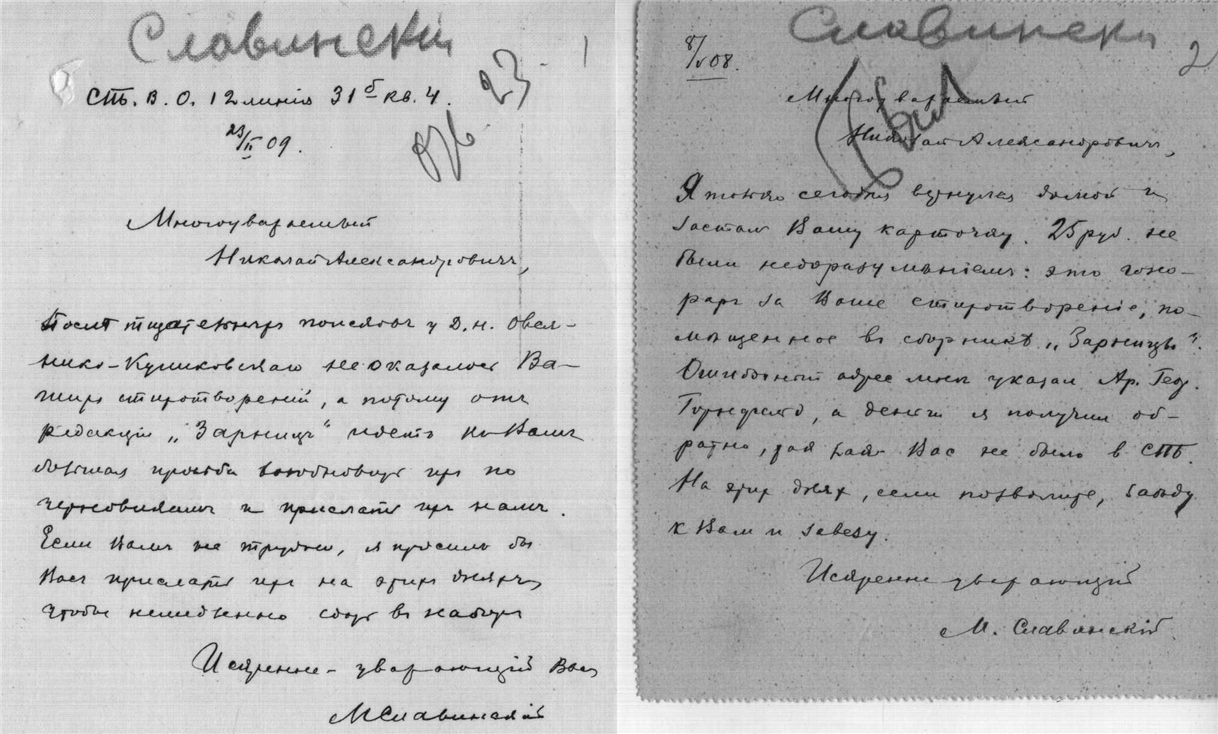 Славинскій
1
СПб. В. О. 12 линія 31б кв. 4.
23
23/II 09.
Многоуважаемый
Николай Александровичъ,
Послѣ тщательныхъ поисковъ у Д. Н. Овся-
нико-Куликовскаго не оказалось Ва-
шихъ стихотвореній, а потому отъ
редакціи „Зарницъ“ идетъ къ Вамъ
большая просьба возобновить ихъ по
черновикамъ и прислать ихъ намъ.
Если Вамъ не трудно, я просилъ бы
Васъ прислать ихъ на этихъ дняхъ,
чтобы немедленно сдать въ наборъ
Искренне-уважающій Васъ
МСлавинскій
Славински
2
8/V 08.
Многоуважаемый
Николай Александровичъ,
Я только сегодня вернулся домой и
засталъ Вашу карточку. 25 руб. не
были недоразумѣніемъ: это гоно-
раръ за Ваше стихотвореніе, по-
мѣщенное въ сборникѣ „Зарницы“.
Ошибочный адресъ мнѣ указалъ Ар. Геор.
Горнфельд, а деньги я получил об-
ратно, так как Вас не было в СПБ.
На этих днях, если позволите, заѣду
к Вам и завезу.
Искренне уважающій
М. Славинскій.